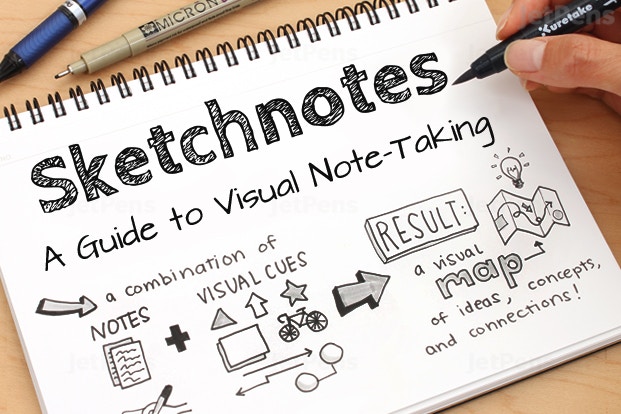 MICRON
Kuretake
Sketchnotes
A Guide to Visual Note-Taking
a combination of
NOTES
VISUAL CUES
RESULT:
a visual
map
of ideas, concepts,
and connections!
JetPens